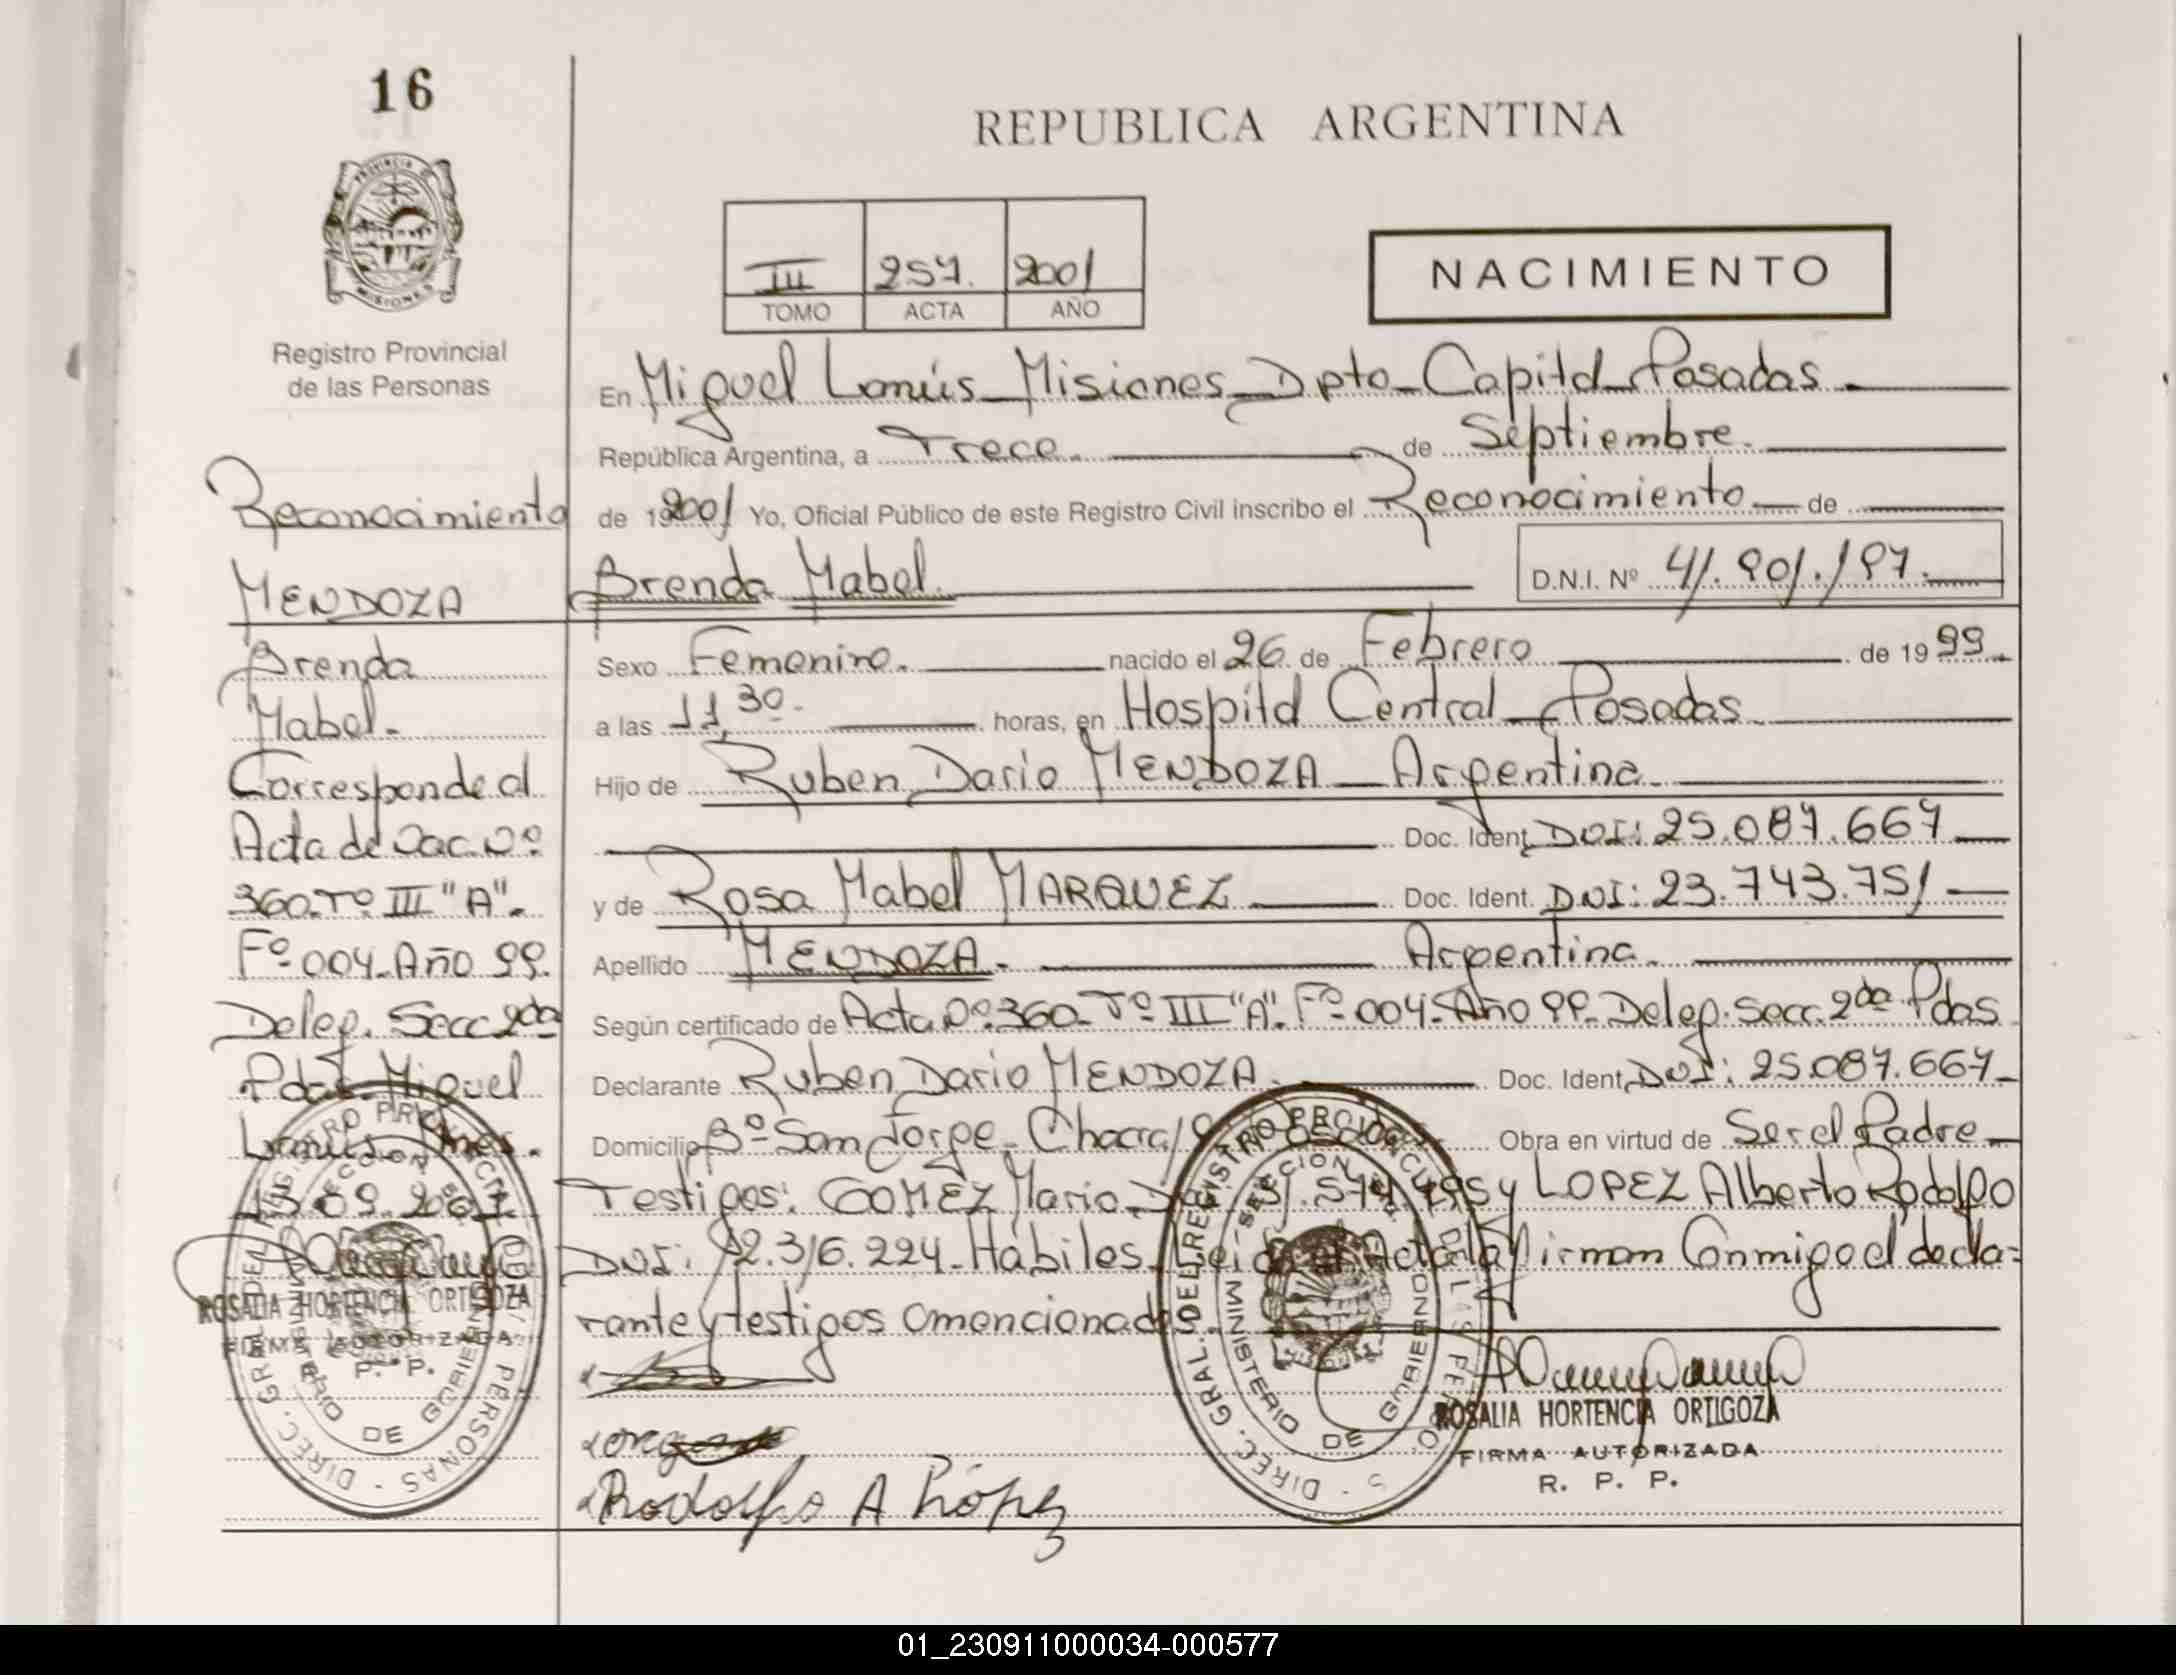 16
REPUBLICA ARGENTINA
PROVINCIA DE
MISIONES
Registro Provincial
de las Personas
III 257. 2001
TOMO ACTA AÑO
NACIMIENTO
En Miguel Lanús - Misiones - Dpto - Capital - Posadas.
República Argentina, a Trece. de Septiembre.
de 19 2001 Yo, Oficial Público de este Registro Civil inscribo el Reconocimiento de
Brenda Mabel. D.N.I. Nº 41.901.197.
Sexo Femenino. nacido el 26 de Febrero de 19 99.
a las 11,30. horas, en Hospital Central - Posadas.
Hijo de Ruben Dario MENDOZA - Argentina.
Doc. Ident. DNI: 25.087.667
y de Rosa Mabel MARQUEZ Doc. Ident. DNI: 23.743.751
Apellido MENDOZA. Argentina.
Según certificado de Acta Nº 360 - Tº III "A". Fº 004 - Año 99 - Deleg. Secc. 2da Pdas
Declarante Ruben Dario MENDOZA. Doc. Ident. DNI: 25.087.667
Domicilio Bº San Jorge - Chacra Obra en virtud de Ser el Padre
Testigos: GOMEZ Mario y LOPEZ Alberto Rodolfo
DNI: 12.316.224 - Hábiles - Acta la firman Conmigo el decla=
rante y testigos
Rodolfo A López
ROSALIA HORTENCIA ORTIGOZA
FIRMA AUTORIZADA
R. P. P.
Reconocimiento
MENDOZA
Brenda
Mabel.
Corresponde al
Acta de Nac. Nº
360 - Tº III "A".
Fº 004 - Año 99.
Deleg. Secc 2da
Pdas. Miguel
Lanús - Mnes.
13 09 2001
ROSALIA HORTENCIA ORTIGOZA
FIRMA AUTORIZADA
R. P. P.
DIREC. GRAL. DEL REGISTRO PROVINCIAL DE LAS PERSONAS
MINISTERIO DE GOBIERNO
DIREC. GRAL. DEL REGISTRO PROVINCIAL DE LAS PERSONAS
MINISTERIO DE GOBIERNO
01_230911000034-000577